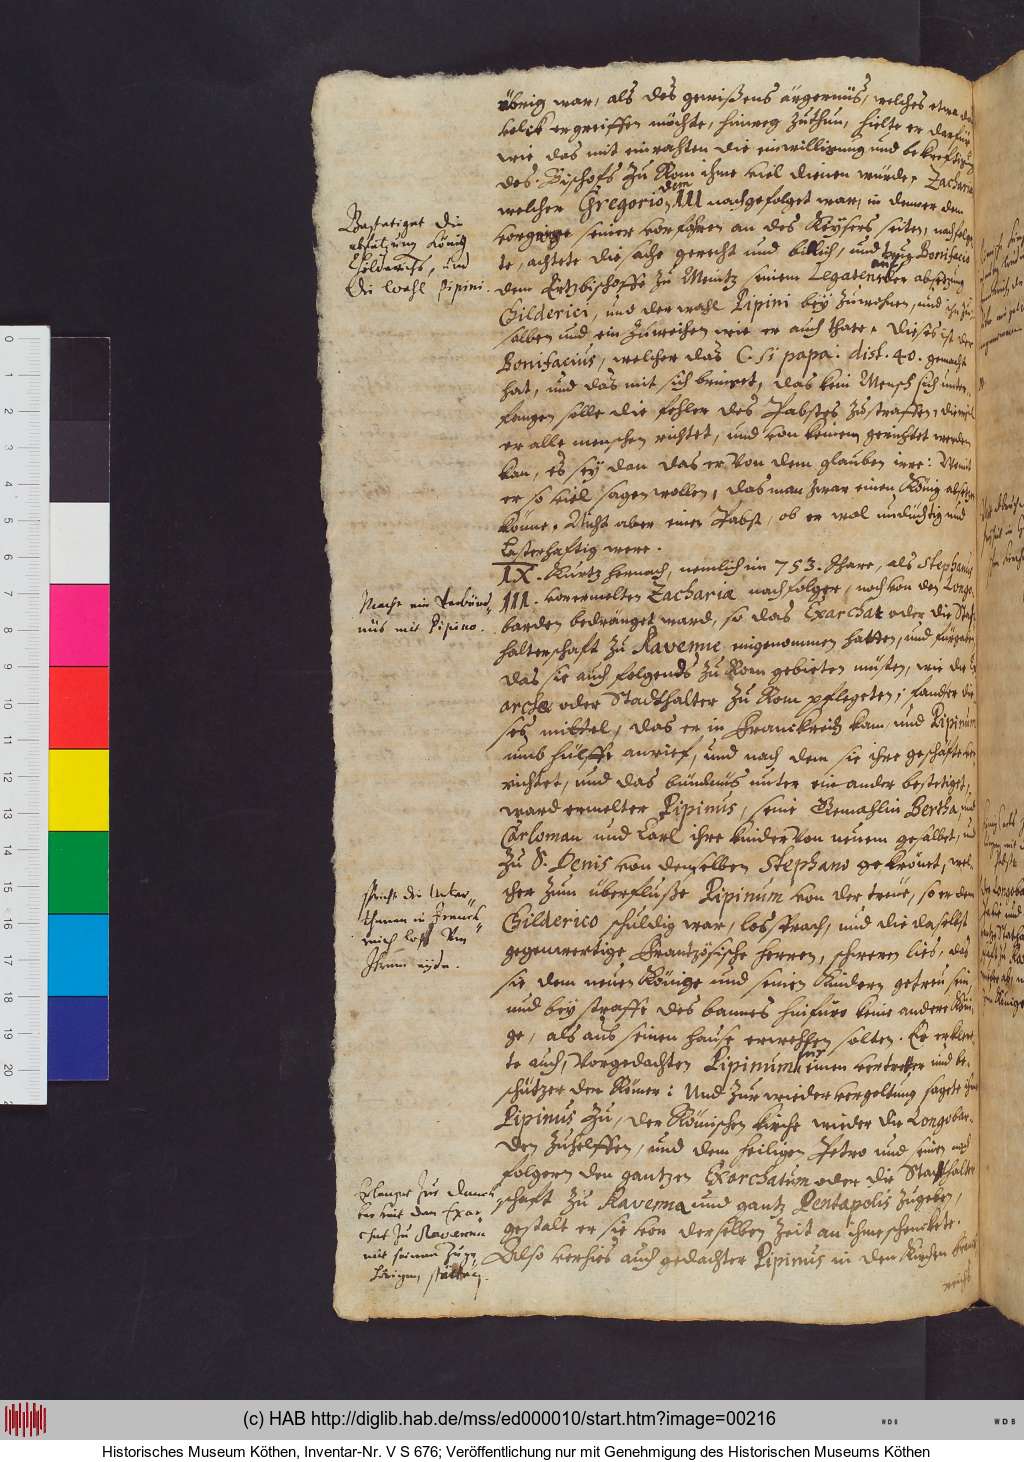 übrig war, als des gewißens ärgernüs, welches etwa das
volck ergreiffen möchte, hinweg zuthun, hielte er darfür
wie das mit einrahten die einwilligung und bekreftig
des Bischofs zu Rom ihme viel dienen würde, Zacharia
welcher Gregorio dem III nachgefolget war, in deme er dem
seiner vorfahren an des Keysers seiten, nachfolg
te, achtete die sache gerecht und billich, und trug Bonifacio
dem Ertzbischoffe zu Meintz seinem Legaten auf der absetzung
Gilderici, und der wahl Pipini bey zuwohnen, und ihn zu
salben und ein zuweihen wie er auch thate. Dieses ist der
Bonifacius, welcher das C. si papa: dist. 40. gemacht
hat, und das mit sich bringet, das kein Mensch sich unter
fangen solle die fehler des Pabstes zustraffen, dieweil
er alle menschen richtet, und von keinem gerichtet werden
kan, es sey dan das er von dem glauben irre: Womit
er so viel sagen wollen, das man zwar einen König absetzen
könne. Nicht aber einen Pabst, ob er wol undüchtig und
Lasterhaftig were.
IX. Kurtz hernach, nemlich im 753. Jhare, als Stephanus
III. vorermelten Zachariæ nachfolger, noch von den Longo
barden bedränget ward, so das Exarchat oder die Stat
halterschaft zu Ravenne eingenommen hatten, und fürgaben
das sie auch folgends zu Rom gebieten müsten, wie die Ex
archæ oder Stadthalter zu Rom pflegeten; fander die
ses mittel, das er in Franckreich kam, und Pipinum
umb hülffe anrief, und nach dem sie ihre geschäfte ver
richtet, und das bündnüs unter ein ander bestetiget,
ward ermelter Pipinus, seine Gemahlin Bertha, und
Carloman und Carl ihre kinder von neuem gesalbet, und
zu S. Denis von demselben Stephano gekrönet, wel
cher zum überfluße Pipinum von der treüe, so er dem
Gilderico schuldig war, los sprach, und die daselbst
gegenwertige Frantzösische herren, schweren lies, das
sie dem neuen Könige und seinen Kindern getreu sein,
und bey straffe des bannes hinfüro keine andere Köni
ge, als aus seinem hause erwehlen solten. Er erklær
te auch, vorgedachten Pipinum für einen vertretter und be
schützer der Römer: Und zur wieder vergeltung sagete ihm
Pipinus zu, der Römischen kirche wieder die Longobar
den zuhelffen, und dem heiligen Petro und seinen nach
folgern den gantzen Exarchatum oder die Stadthalter
schaft zu Ravenna und gantz Pentapolis zugeben,
gestalt er sie von derselben zeit an ihme schenckete.
Also verhies auch gedachter Pipinus in den Kirchen
Bestetiget die
absetzung König
Childerichs, und
die wahl Pipini.
Mache ein Verbünd
nüs mit Pipino.
spricht die Unter
thanen in Franck
reich loß von
Ihrem eyde.
Erlanget zur danck
barkeit den Exar
chat zu Ravenna
mit seinen zuge
hörigen, stätten.
(c) HAB http://diglib.hab.de/mss/ed000010/start.htm?image=00216
Historisches Museum Köthen, Inventar-Nr. V S 676; Veröffentlichung nur mit Genehmigung des Historischen Museums Köthen